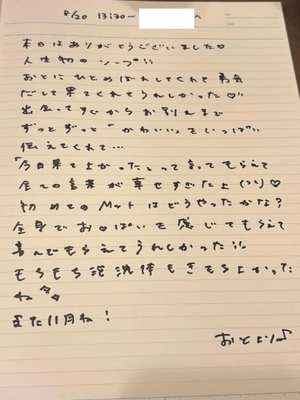 8/20 13:30〜 へ
本日はありがとうございました♡
人生初のソープ!!
おとにひとめぼれしてくれて勇気
だして来てくれてうれしかった♡!!
出会ってすぐからお別れまで
ずっとずっと「かわいい」をいっぱい
伝えてくれて…
「今日来て上かった」って言ってもらえて
全ての言葉が幸せすぎたよ(つ)♡
初めてのMatはどうやったかな?
全身でおっぱいを感じてもらえて
喜んでもらえてうれしかった!!
もちもち泡洗体もきもちよかった
ね
また11月ね!
おとより♪